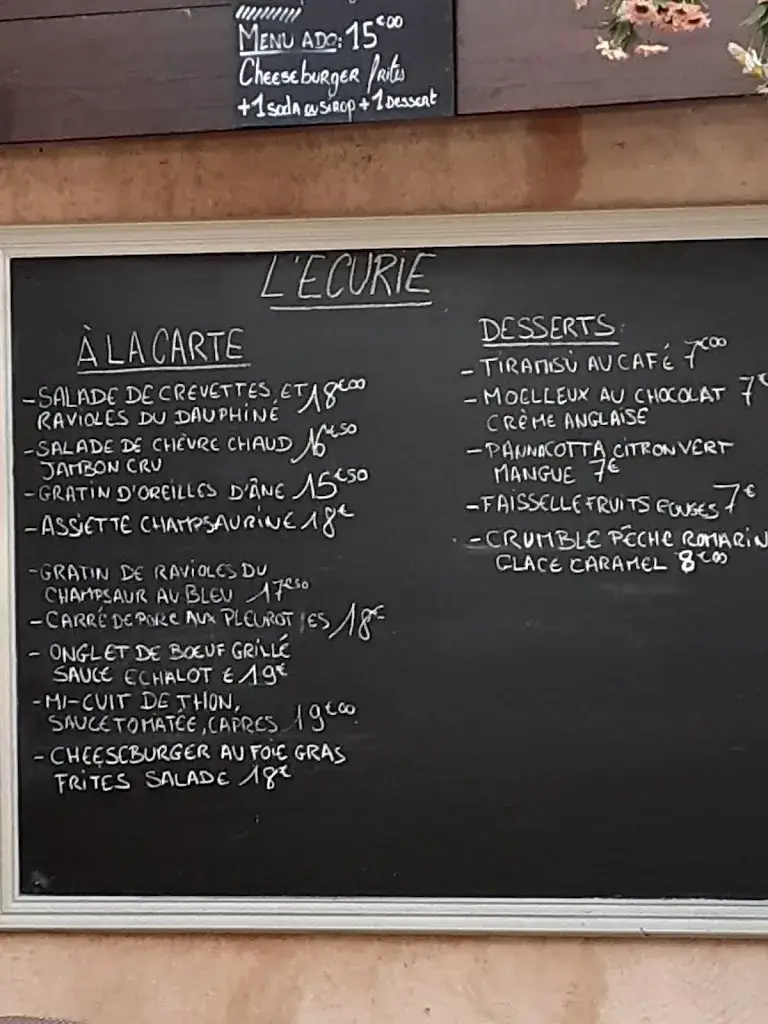 MENU ADO: 15€00
Cheeseburger frites
+1 soda ou sirop + 1 Dessert
L'ECURIE
À LA CARTE
- SALADE DE CREVETTES, ET 18€00
RAVIOLES DU DAUPHINÉ
- SALADE DE CHÈVRE CHAUD 16€50
JAMBON CRU
- GRATIN D'OREILLES D'ÂNE 15€50
- ASSIETTE CHAMPSAURINE 18€
- GRATIN DE RAVIOLES DU
CHAMPSAUR AU BLEU 17€50
- CARRÉ DE PORC AUX PLEUROTTES 18€
- ONGLET DE BOEUF GRILLÉ
SAUCE ECHALOTE 19€
- MI-CUIT DE THON,
SAUCE TOMATÉE, CAPRES 19€00
- CHEESEBURGER AU FOIE GRAS
FRITES SALADE 18€
DESSERTS:
- TIRAMISÙ AU CAFÉ 7€00
- MOELLEUX AU CHOCOLAT 7€
CRÈME ANGLAISE
- PANNACOTTA CITRON VERT
MANGUE 7€
- FAISSELLE FRUITS ROUGES 7€
- CRUMBLE PÊCHE ROMARIN
GLACE CARAMEL 8€00